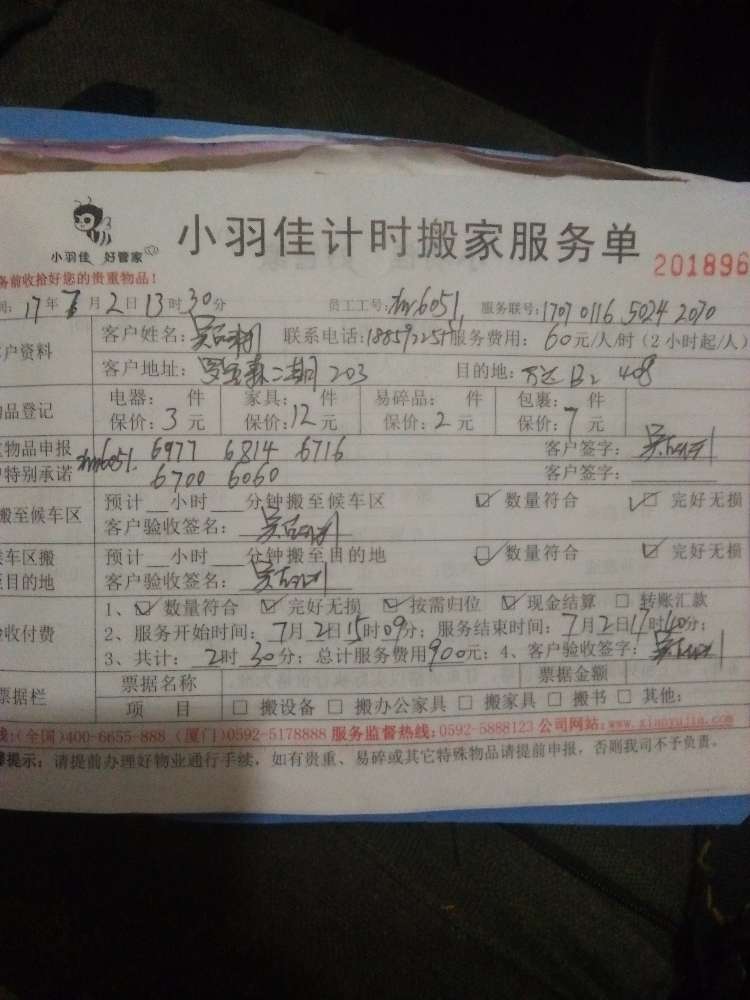 小羽佳 好管家
小羽佳计时搬家服务单
务前收拾好您的贵重物品!
201896
间: 17年7月2日13时30分 员工工号: 6051 服务联号: 1707 0116 5024 2070
户资料 客户姓名: 联系电话: 服务费用: 60元/人/时(2小时起/人)
客户地址: 二期 203 目的地: 万达 B2 408
品登记 电器: 件 家具: 件 易碎品: 件 包裹: 件
保价: 3 元 保价: 12 元 保价: 2 元 保价: 7 元
物品申报 6051. 6977 6814 6716 客户签字:
特别承诺 6700 6060 客户签字:
搬至候车区 预计__小时__分钟搬至候车区 ☑ 数量符合 ☑ 完好无损
客户验收签名:
车区搬 预计__小时__分钟搬至目的地 ☑ 数量符合 ☑ 完好无损
目的地 客户验收签名:
验收付费 1、☑ 数量符合 ☑ 完好无损 ☑ 按需归位 ☑ 现金结算 □ 转账汇款
2、服务开始时间: 7月2日15时09分; 服务结束时间: 7月2日17时40分;
3、共计: 2时30分; 总计服务费用900元; 4、客户验收签字:
票据栏 票据名称 票据金额
项 目 □ 搬设备 □ 搬办公家具 □ 搬家具 □ 搬书 □ 其他:
线:(全国)400-6655-888 (厦门)0592-5178888 服务监督热线:0592-5888123 公司网站: www.xiaoyujia.com
提示: 请提前办理好物业通行手续, 如有贵重、易碎或其它特殊物品请提前申报, 否则我司不予负责。